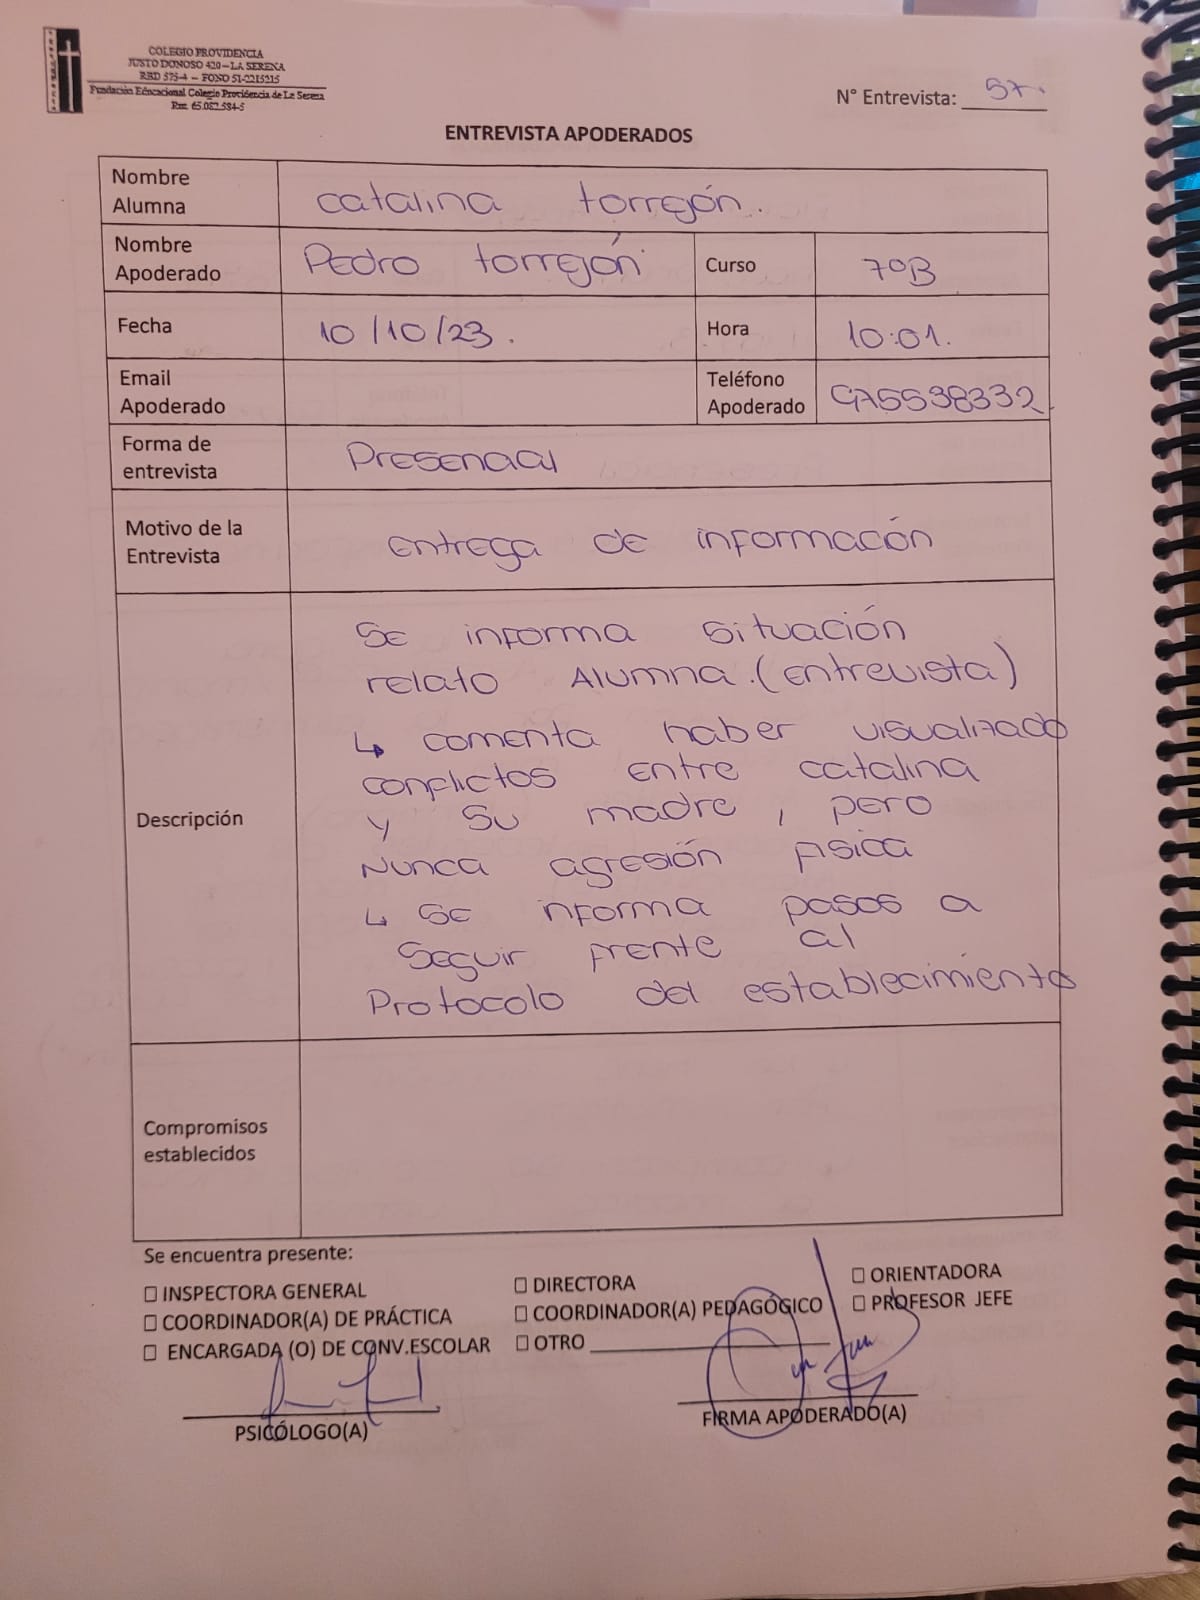 COLEGIO PROVIDENCIA
JUSTO DONOSO 420 – LA SERENA
RBD 575-4 – FONO 51-2215215
Fundación Educacional Colegio Providencia de La Serena
Rut: 65.082.584-5
N° Entrevista: 57.
ENTREVISTA APODERADOS
Nombre Alumna catalina torrejón.
Nombre Apoderado Pedro torrejón Curso 7ºB
Fecha 10/10/23. Hora 10:01.
Email Apoderado Teléfono Apoderado 975538332.
Forma de entrevista Presencial
Motivo de la Entrevista Entrega de información
Descripción
Se informa situación
relato Alumna. (Entrevista)
↳ comenta haber visualizado
conflictos entre catalina
y su madre, pero
Nunca agresión fisica
↳ se informa pasos a
seguir frente al
Protocolo del establecimiento
Compromisos establecidos
Se encuentra presente:
☐ INSPECTORA GENERAL ☐ DIRECTORA ☐ ORIENTADORA
☐ COORDINADOR(A) DE PRÁCTICA ☐ COORDINADOR(A) PEDAGÓGICO ☐ PROFESOR JEFE
☐ ENCARGADA (O) DE CONV.ESCOLAR ☐ OTRO
PSICÓLOGO(A) FIRMA APODERADO(A)